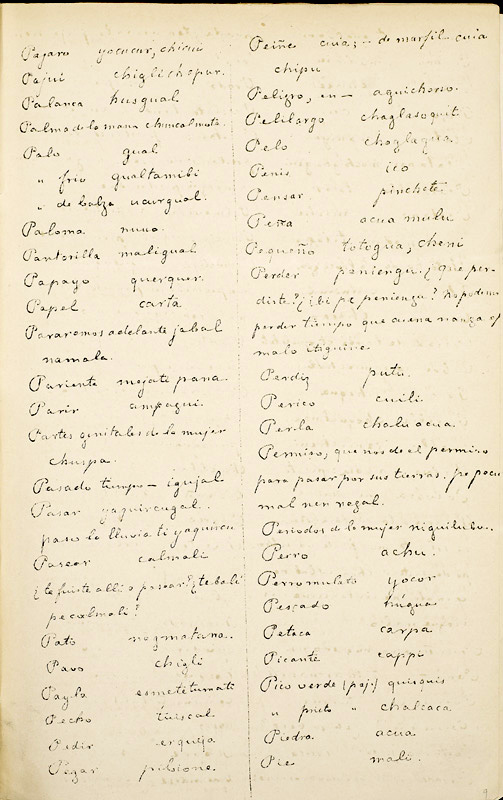 Pajaro yocucur, chicui
Pajui chiglichopur.
Palanca husgual
Palma de la mano chucalmata.
Palo gual
" frio gualtamibi
" de balza ucurgual.
Paloma nuuo
Pantorilla maligual
Papayo querquer.
Papel carta
Pararemos adelante jabal
namala.
Pariente mojate pana.
Parir ampagui.
Partes genitales de la mujer
chuspa.
Pasado tiempo — igujal
Pasar yaquircugal.
paso la lluvia ti yaquircu
Pasear calmali
¿te fuiste alli a pasear? ¿te bali
pe calmali?
Pato nogmatana.
Pavo chigli
Payla esmetetumati
Pecho tuiscal
Pedir erqueja
Pegar pibione.
Peine cuia; — de marfil cuia
chipu
Peligro, en — aquichorso.
Pelilargo choglasoquit.
Pelo choglagua
Penis ico
Pensar pinchete
Peña acua mulu
Pequeño totogua, cheni
Perder poniengu. ¿que per-
diste? ¿ibi pe penienzu? no podemos
perder tiempo que
malo
Perdiz puti.
Perico cuili
Perla chalu acua.
Permiso, que nos de el permiso
para pasar por sus tierras. pe pocu
mal ner negal.
Periodos de la mujer niguilubu.
Perro achu.
Perro mulato yocor
Pescado húgua
Petaca carpa
Picante cappi
Pico verde (paj.) quiquis
" prieto " chalcaca
Piedra acua
Pie mali.